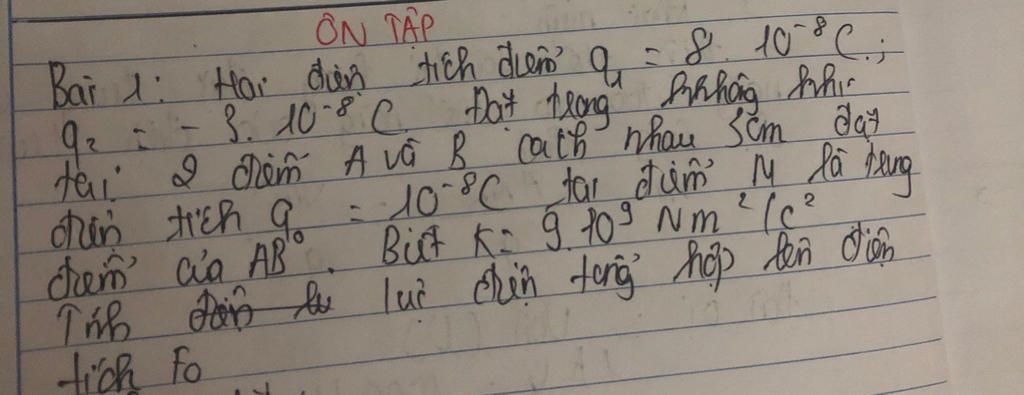 ÔN TẬP
Bài 1: Hai điện tích điểm q₁ = 8. 10⁻⁸C;
q₂ = - 3. 10⁻⁸ C. Đặt trong không khí
tại 2 điểm A và B cách nhau 3cm đặt
điện tích q₀ = 10⁻⁸C tại điểm M là trung
điểm của AB. Biết K= 9.10⁹ Nm²/c²
Tính lực điện tổng hợp lên điện
tích Fo